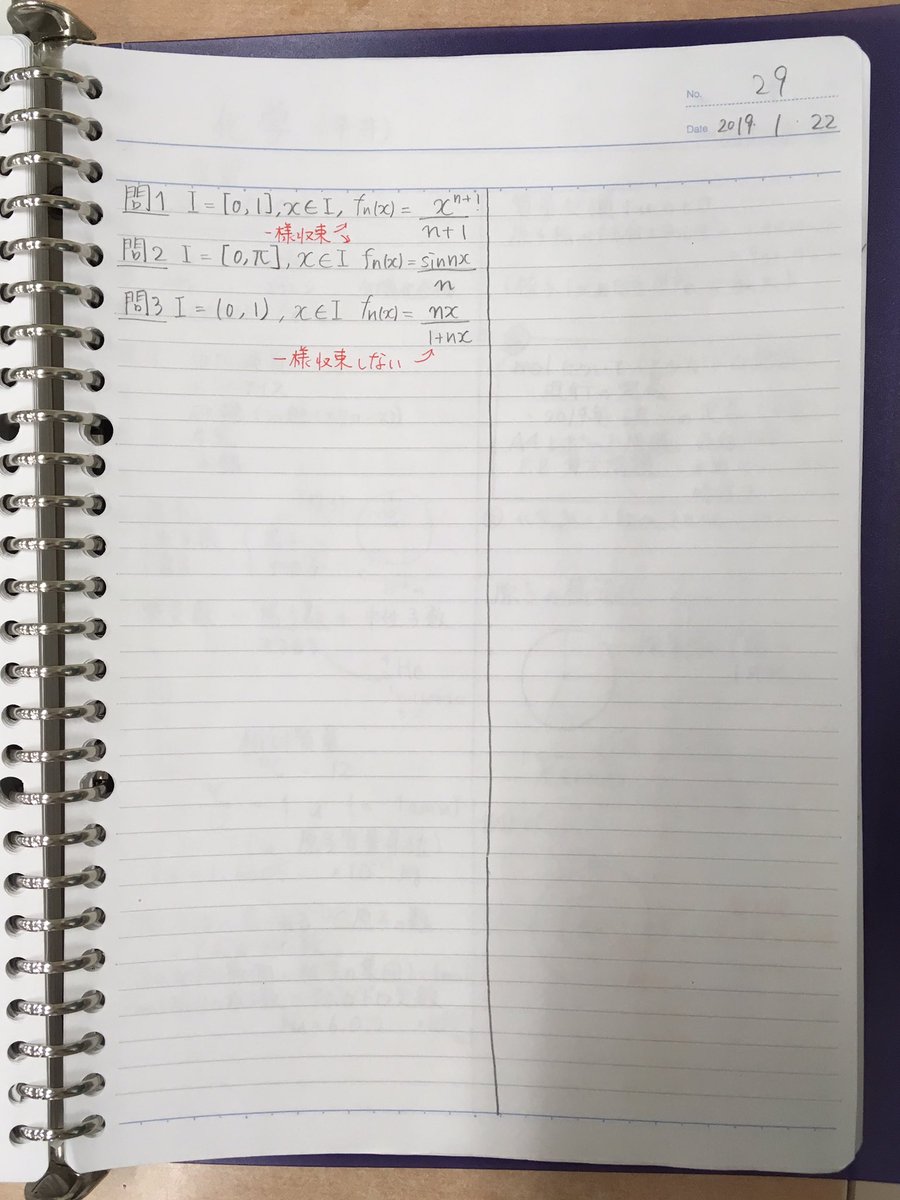 No. 29
Date 2019. 1 . 22
問1 I = [0, 1], x∈I, fn(x) = x^{n+1}/n+1
一様収束
問2 I = [0, π], x∈I fn(x) = sin nx/n
問3 I = (0, 1), x∈I fn(x) = nx/1+nx
一様収束しない